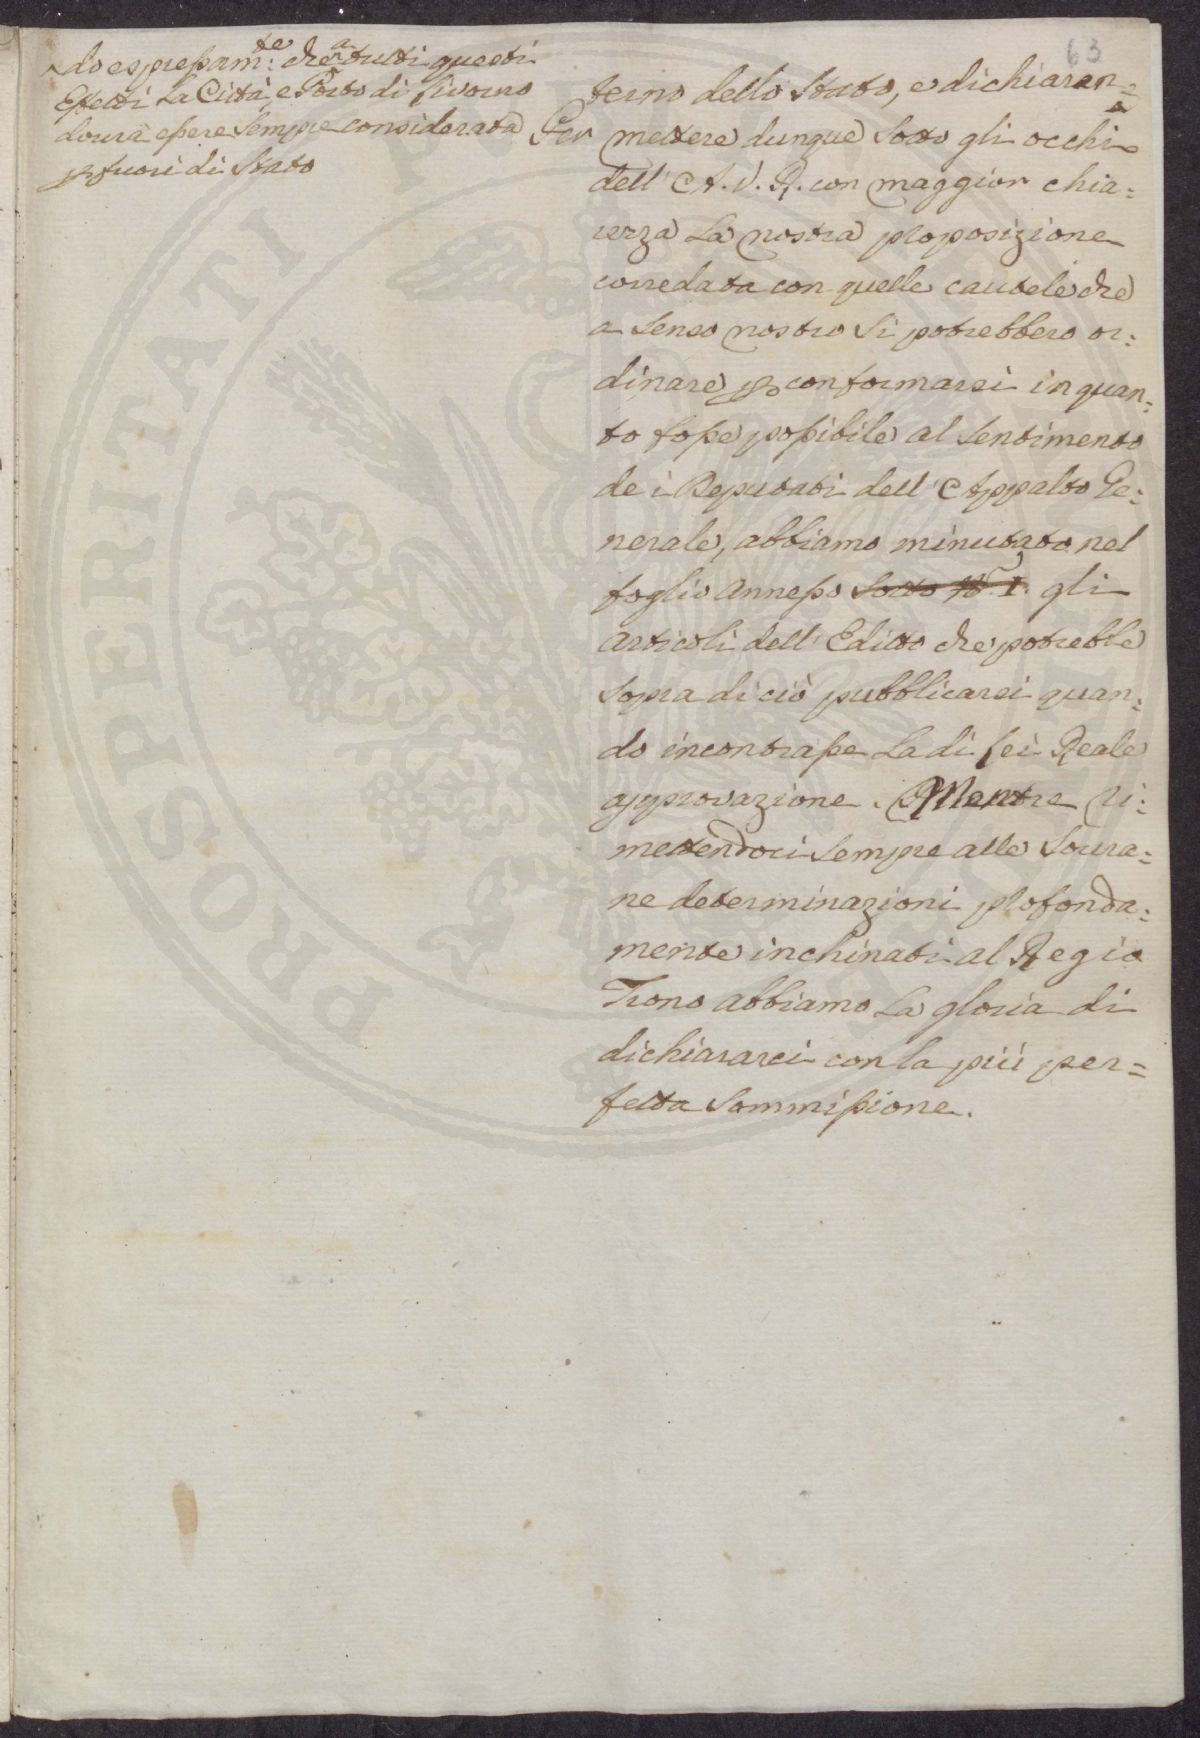 63
do espressam:te che a tutti questi
Effetti La Città, e Porto di Livorno
dourà essere Sempre considerata
per fuori di Stato
terno dello Stato, e dichiaran=
Per mettere dunque Sotto gli occhi
dell' A. V. R. con maggior chia=
rezza La nostra proposizione
corredata con quelle cautele che
a Senso nostro Si potrebbero or=
dinare per conformarsi in quan=
to fosse possibile al Sentimento
de i Deputati dell' Appalto Ge=
nerale, abbiamo minutato nel
foglio annesso Sotto N.º I. gli
articoli dell' Editto che potrebbe
Sopra di ciò pubblicarsi quan=
do incontrasse La di Lei Reale
approvazione. Mentre ri=
mettendoci Sempre alle Sovra=
ne determinazioni profonda=
mente inchinati al Regio
Trono abbiamo La gloria di
dichiararci con la più per=
fetta Sommissione.
PROSPERITATI